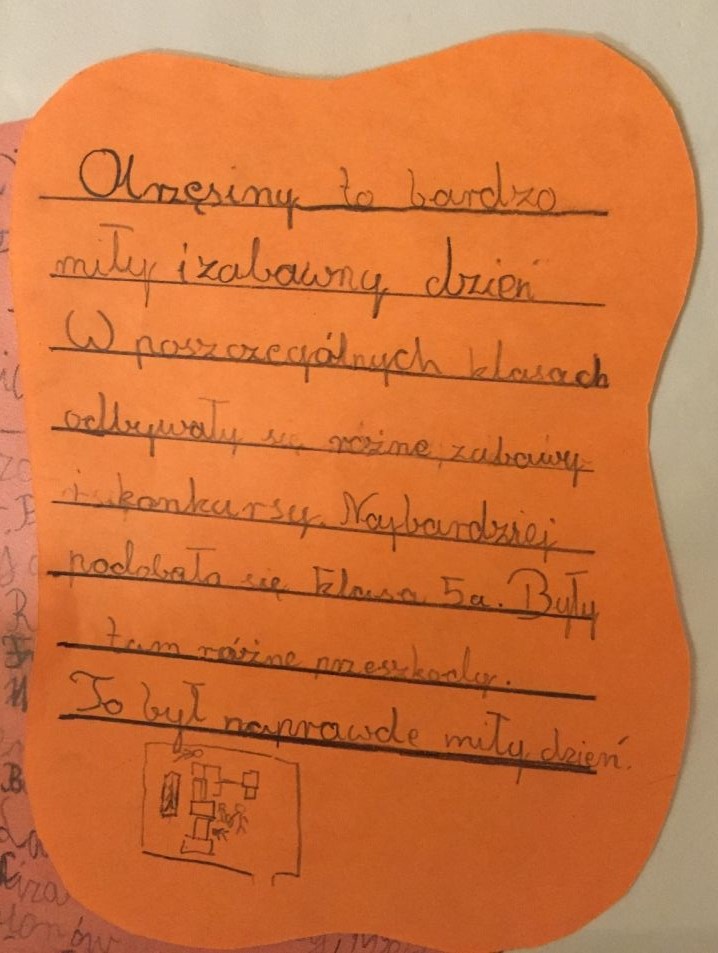 Otrzęsiny to bardzo
miły i zabawny dzień
W poszczególnych klasach
odbywały się różne zabawy
i konkursy. Najbardziej
podobała się klasa 5a. Były
tam różne przeszkody.
To był naprawde miły dzień.